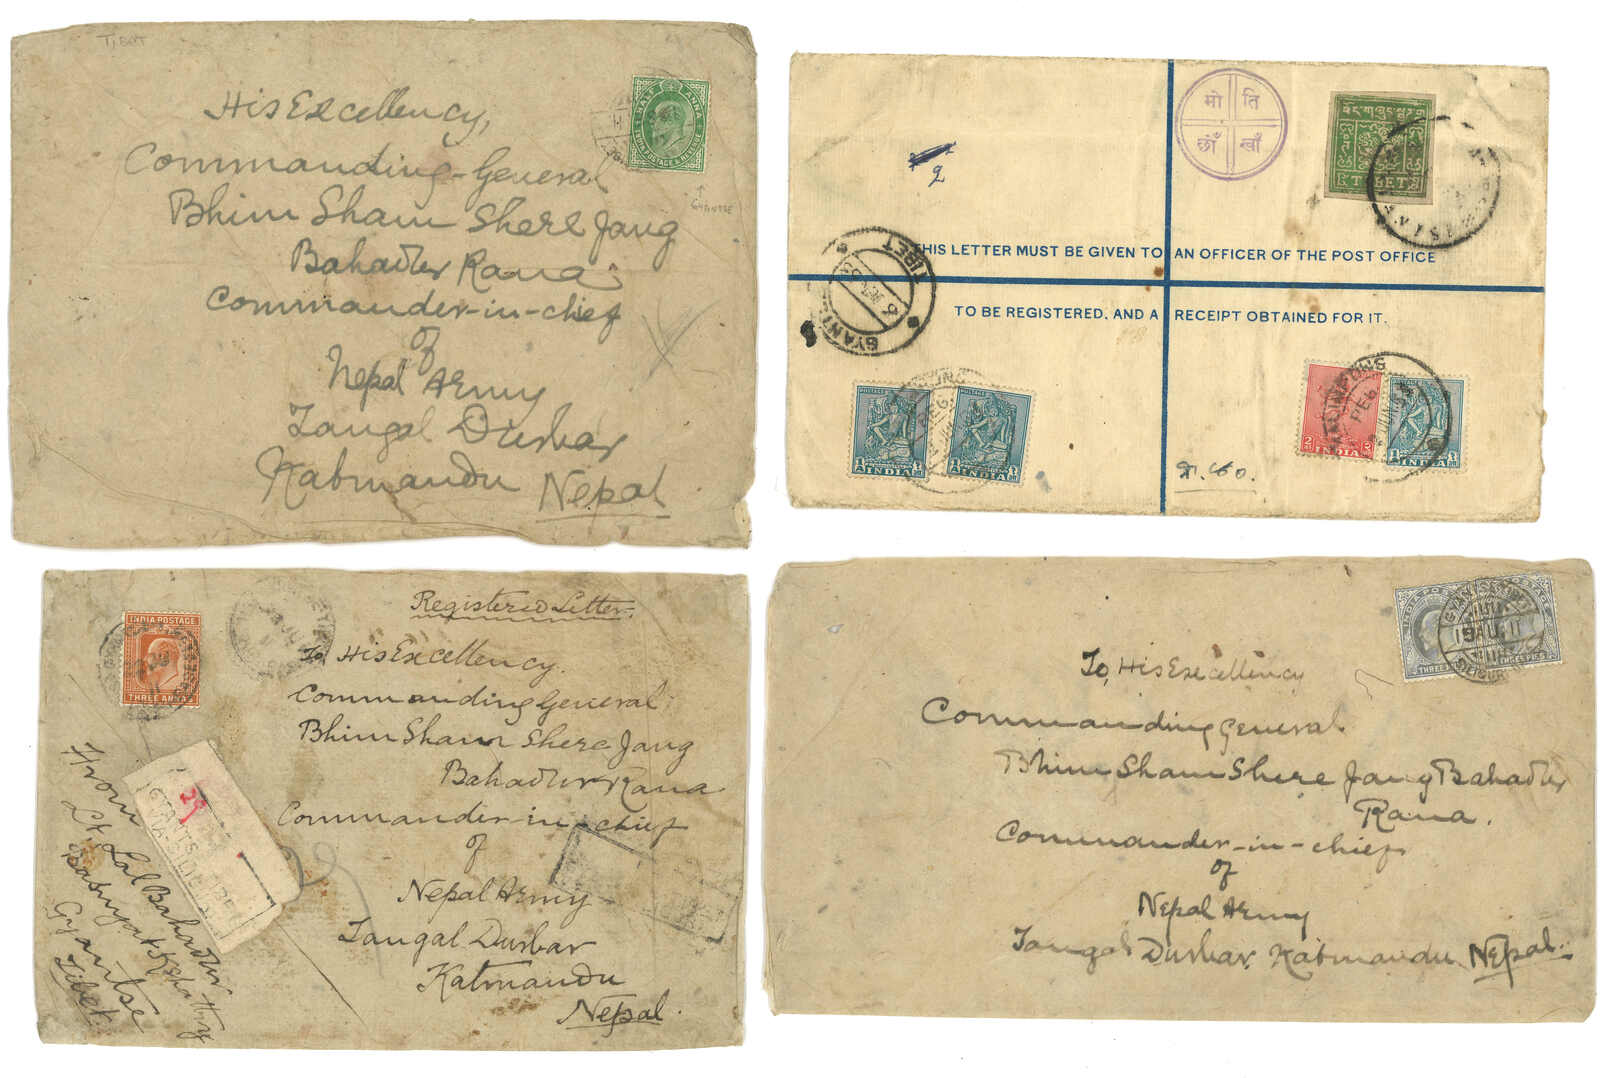 TIBET
His Excellency,
Commanding-General
Bhim Sham Shere Jang
Bahadur Rana
Commander-in-chief
of
Nepal Army
Tangal Durbar
Katmandu Nepal
HALF ANNA
INDIA POSTAGE & REVENUE
GYANTSE
मो ति
छाँ खाँ
2
TIBET
THIS LETTER MUST BE GIVEN TO AN OFFICER OF THE POST OFFICE
TO BE REGISTERED, AND A RECEIPT OBTAINED FOR IT.
TIBET
POSTAGE
INDIA
POSTAGE
INDIA
INDIA
INDIA
Registered Letter
INDIA POSTAGE
THREE ANNAS
To, His Excellency.
Commanding General
Bhim Sham Shere Jang
Bahadur Rana
Commander-in-chief
of
Nepal Army
Tangal Durbar
Katmandu
Nepal.
29
From
Lt. Lal Bahadur
Gyantse
Tibet
INDIA POSTAGE
THREE PIES
THREE PIES
19 AU. 11
To, His Excellency
Commanding General
Bhim Sham Shere Jang Bahadur
Rana.
Commander-in-chief
of
Nepal Army
Tangal Durbar Katmandu Nepal.